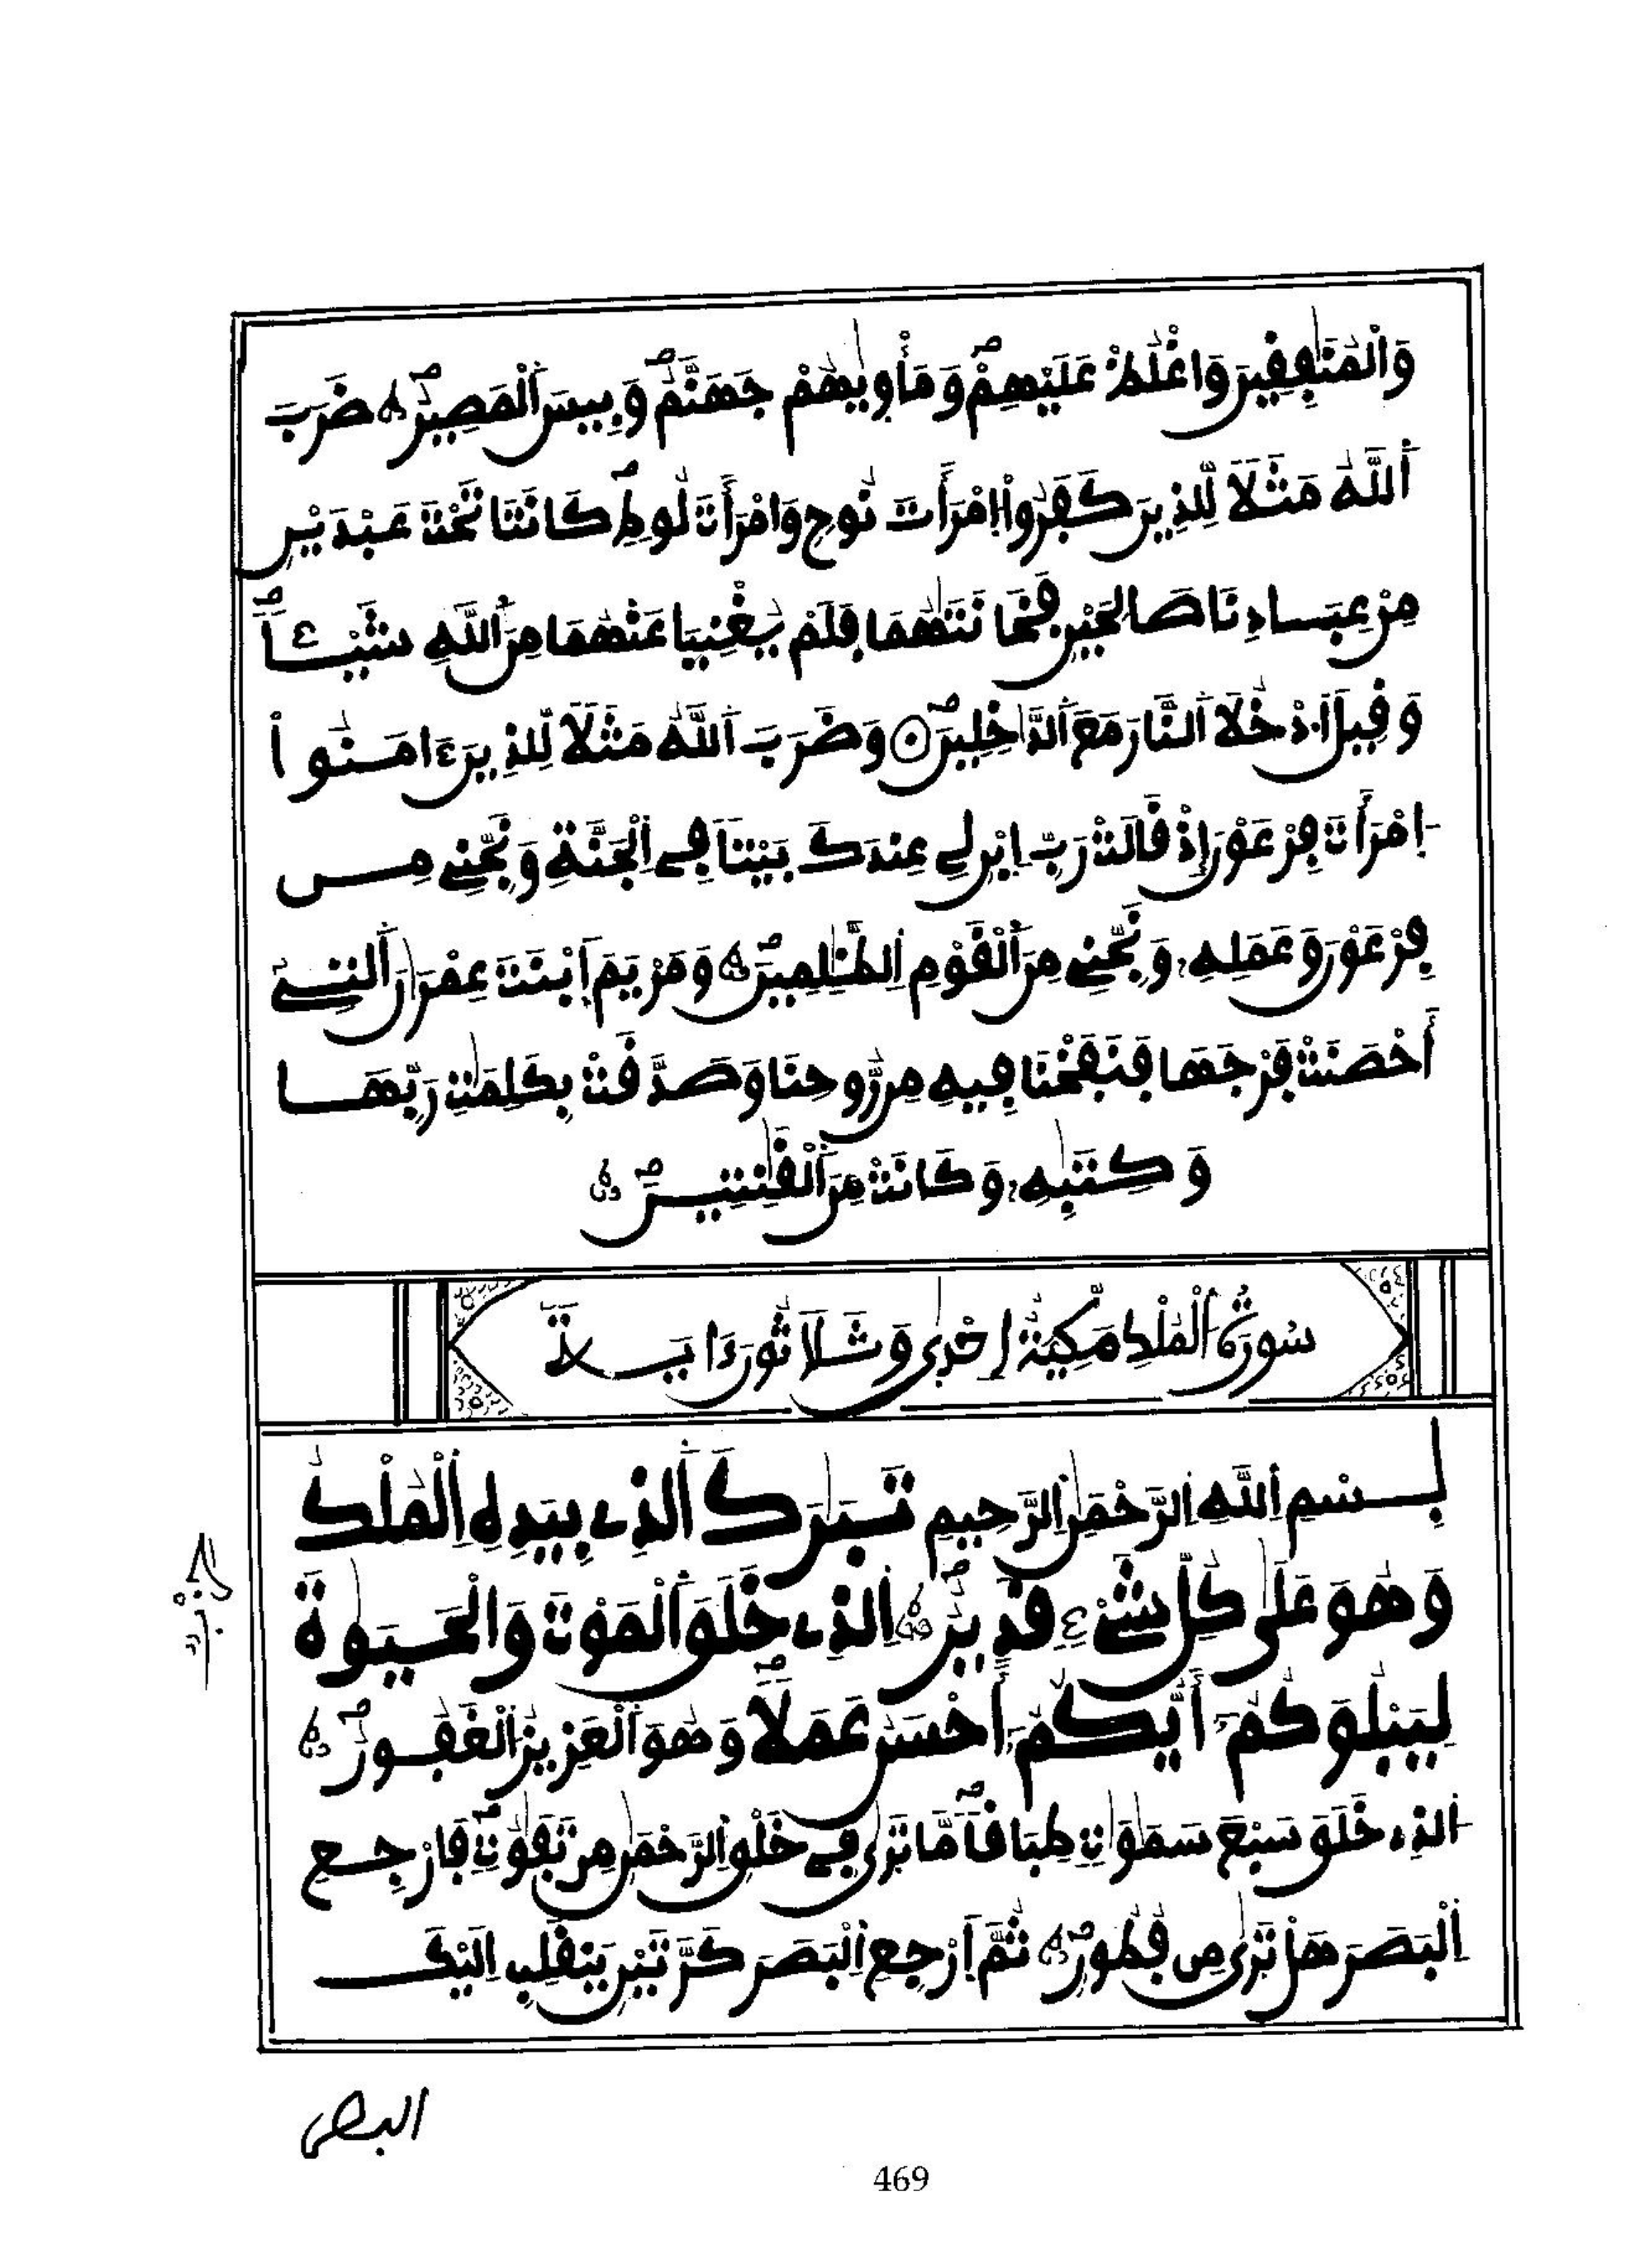 وَالْمُنَٰفِقِينَ وَاغْلُظْ عَلَيْهِمْ وَمَأْوِيٰهُمْ جَهَنَّمُ وَبِيسَ اَلْمَصِيرُ ضَرَبَ
اَللَّهُ مَثَلًا لِّلذِينَ كَفَرُواْ اِمْرَأَتَ نُوحٍ وَامْرَأَتَ لُوطٍ كَانَتَا تَحْتَ عَبْدَيْنِ
مِنْ عِبَادِنَا صَالِحَيْنِ فَخَانَتَٰهُمَا فَلَمْ يُغْنِيَا عَنْهُمَا مِنَ اَللَّهِ شَيْـًٔا
وَقِيلَ اَدْخُلَا اَلنَّارَ مَعَ اَلدَّاخِلِينَ وَضَرَبَ اَللَّهُ مَثَلًا لِّلذِينَ ءَامَنُواْ
اِمْرَأَتَ فِرْعَوْنَ إِذْ قَالَتْ رَبِّ اِبْنِ لِي عِندَكَ بَيْتًا فِي اِلْجَنَّةِ وَنَجِّنِي مِن
فِرْعَوْنَ وَعَمَلِهِۦ وَنَجِّنِي مِنَ اَلْقَوْمِ اِلظَّٰلِمِينَ وَمَرْيَمَ اَبْنَتَ عِمْرَٰنَ اَلتِي
أَحْصَنَتْ فَرْجَهَا فَنَفَخْنَا فِيهِ مِن رُّوحِنَا وَصَدَّقَتْ بِكَلِمَٰتِ رَبِّهَا
وَكِتَٰبِهِۦ وَكَانَتْ مِنَ اَلْقَٰنِتِينَ
سُورَةُ اَلْمُلْكِ مَكِّيَّةٌ إِحْدٰى وَثَلَاثُونَ ءَايَةً
بِسْمِ اِللَّهِ اِلرَّحْمَٰنِ اِلرَّحِيمِ تَبَٰرَكَ اَلذِي بِيَدِهِ اِلْمُلْكُ
وَهُوَ عَلَىٰ كُلِّ شَيْءٍ قَدِيرٌ اِلذِي خَلَقَ اَلْمَوْتَ وَالْحَيَوٰةَ
لِيَبْلُوَكُمُۥ أَيُّكُمُۥ أَحْسَنُ عَمَلًا وَهُوَ اَلْعَزِيزُ اُلْغَفُورُ
اُلذِي خَلَقَ سَبْعَ سَمَٰوَٰتٍ طِبَاقًا مَّا تَرٰى فِي خَلْقِ اِلرَّحْمَٰنِ مِن تَفَٰوُتٍ فَارْجِعِ
اِلْبَصَرَ هَلْ تَرٰى مِن فُطُورٍ ثُمَّ اَرْجِعِ اِلْبَصَرَ كَرَّتَيْنِ يَنقَلِبِ اِلَيْكَ
البصر
469